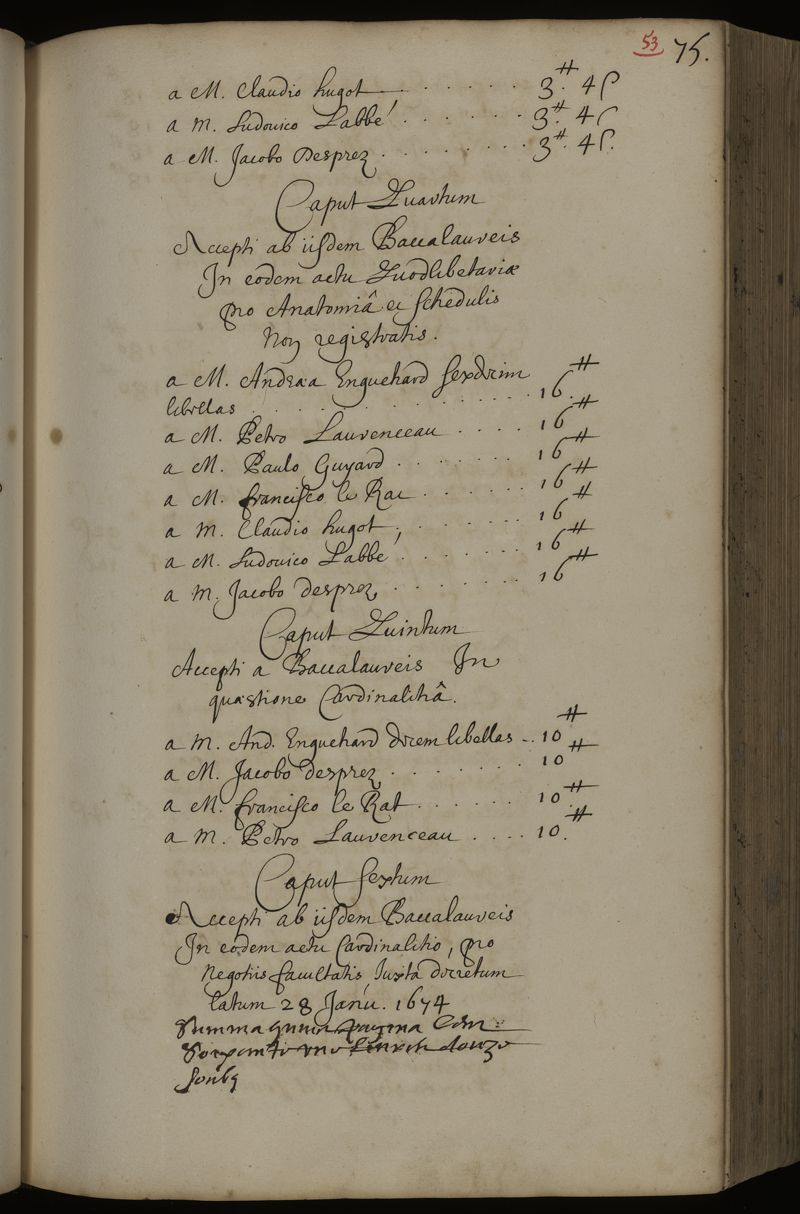 53 75.
a M. Claudio hugot . . . . . . 3.# 4ſ
a M. Ludouico Labbé . . . . . . 3.# 4ſ
a M. Jacobo Desprez . . . . . . . 3.# 4ſ.
Caput Quartum
Accepti ab iisdem Baccalaureis
In eodem actu Quodlibetariæ
pro Anatomiâ et schedulis
Non registratis.
a M. Andraea Enguehard sexdecim
libellas . . . . . . . . . . 16.#
a M. Petro Laurenceau . . . . 16#
a M. Paulo Guyard . . . . . . . 16#
a M. francisco le Rat . . . . . . 16#
a M. Claudio hugot, . . . . . . 16#
a M. Ludouico Labbé . . . . . . . 16#
a M. Jacobo desprez . . . . . . . 16#
Caput Quintum
Accepti a Baccalaureis In
quæstione Cardinalitiâ.
a M. And. Enguehard decem libellas .. 10#
a M. Jacobo desprez . . . . . . . 10#
a M. francisco le Rat . . . . . . 10.#
a M. Petro Laurenceau . . . . 10.#
Caput sextum
Accepti ab iisdem Baccalaureis
In eodem actu Cardinalitio, pro
Negotiis facultatis Juxtà decretum
latum 28 Janu. 1674
Summa pagina Cen
douze